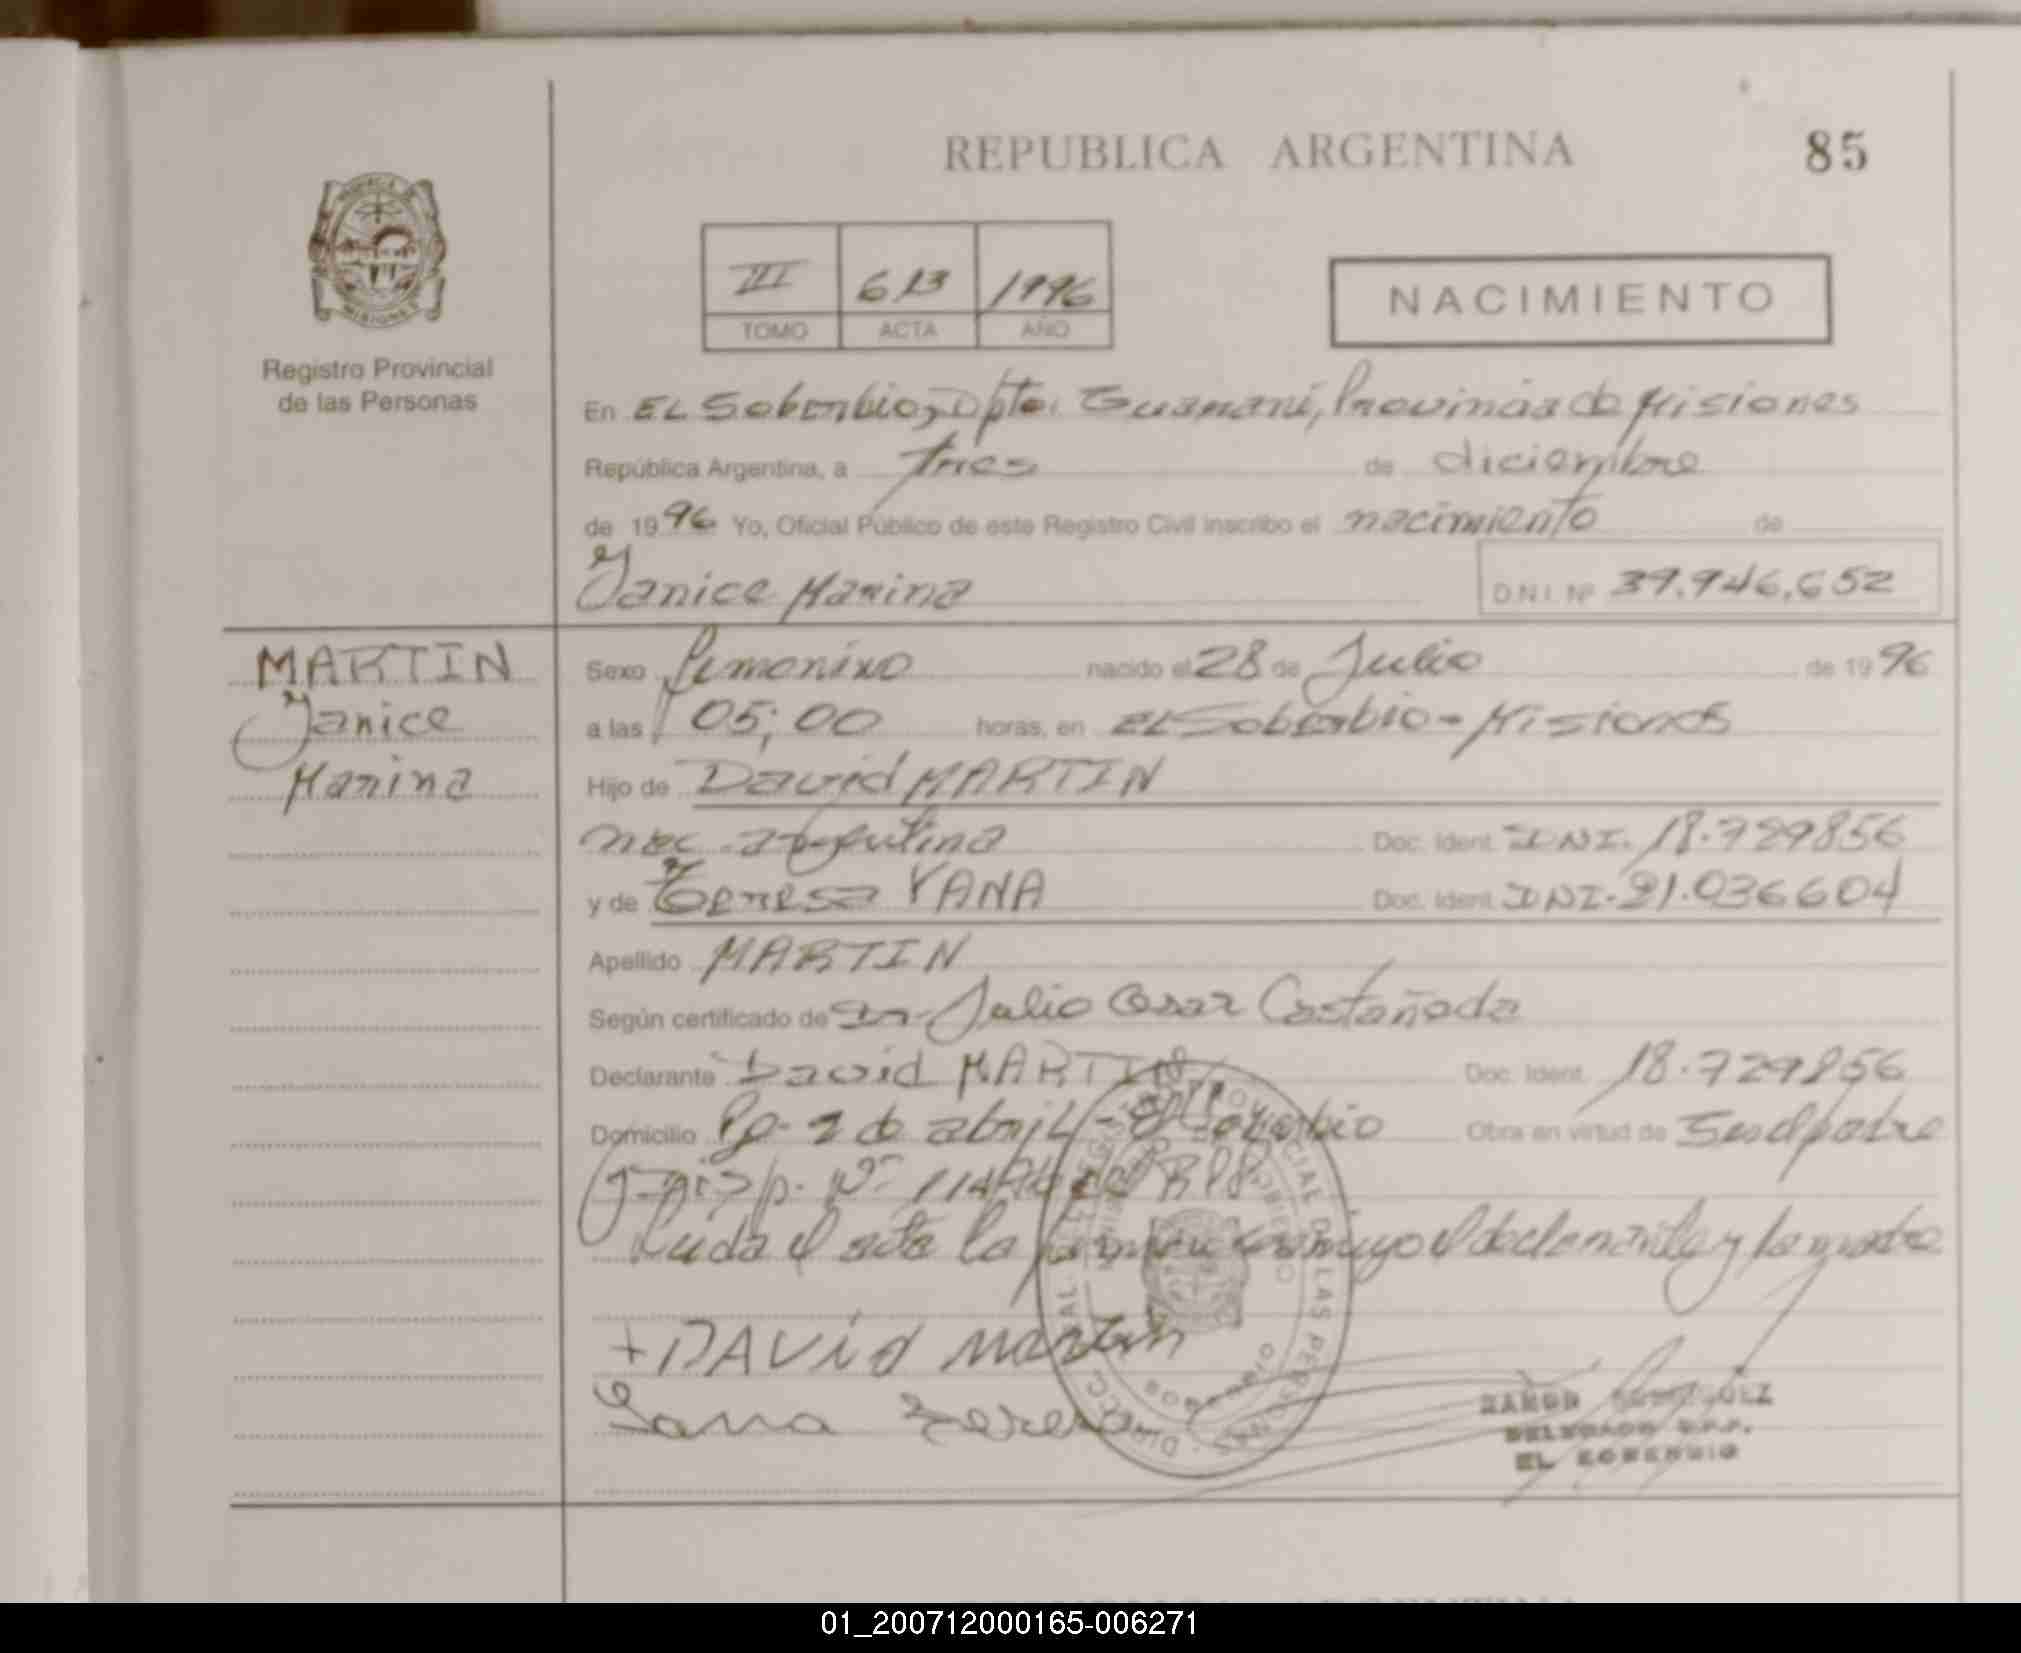 REPUBLICA ARGENTINA
85
MISIONES
Registro Provincial
de las Personas
III 613 1996
TOMO ACTA AÑO
NACIMIENTO
En EL Soberbio, Dpto. Guaraní, Provincia de Misiones
República Argentina, a tres de diciembre
de 1996 Yo, Oficial Público de este Registro Civil inscribo el nacimiento de
Janice Marina
D.N.I. Nº 39.946.652
MARTIN
Janice
Marina
Sexo femenino nacido el 28 de Julio de 1996
a las 05:00 horas, en EL Soberbio - Misiones
Hijo de David MARTIN
nac. argentina Doc. Ident. DNI. 18.729856
y de Teresa YANA Doc. Ident. DNI. 21.036604
Apellido MARTIN
Según certificado de Dr. Julio Cesar Castañeda
Declarante David MARTIN Doc. Ident. 18.729856
Domicilio 2 de abril - El Soberbio Obra en virtud de Ser el padre
Disp. Nº
Leida el acta la firman conmigo el declarante y la madre
+ DAVid Martin
Yana Terera
RAMON
DELEGADO R.P.P.
EL SOBERBIO
01_200712000165-006271